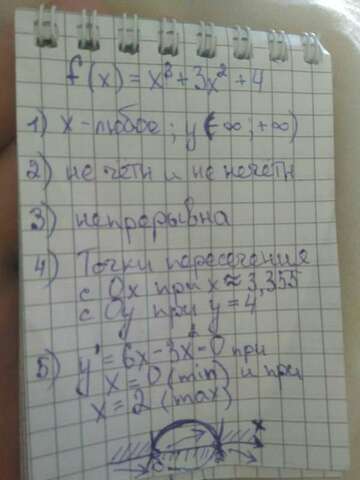 f(x) = x³ + 3x² + 4
1) x - любое; y (-∞; +∞)
2) не четн и не нечетн
3) непрерывна
4) Точки пересечения
с Ox при x ≈ 3,355
с Oy при y = 4
5) y' = 6x - 3x - 0 при
x = 0 (min) и при
x = 2 (max)
x